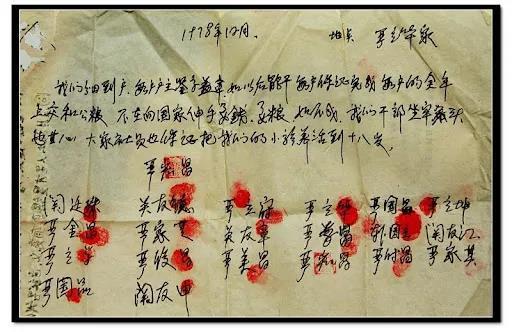 1978年12月. 地点 严立华家
我们分田到户 每户户主签字盖章 如以后能干 每户保证完成每户的全年
上交和公粮 不在向国家伸手要钱 要粮 如不成 我们干部坐牢杀头
也甘心 大家社员也保证把我们的小孩养活到十八岁
严宏昌
关廷珠 关友德 严立符 严立华 严国昌 严立坤
严金昌 严家芝 关友章 严学昌 韩国云 关友江
严立学 严俊昌 严美昌 严付昌 严家其
严国品 关友申